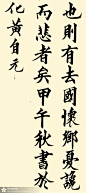 也則有去國懷鄉憂讒
而悲者矣甲午秋書於
化黄自元